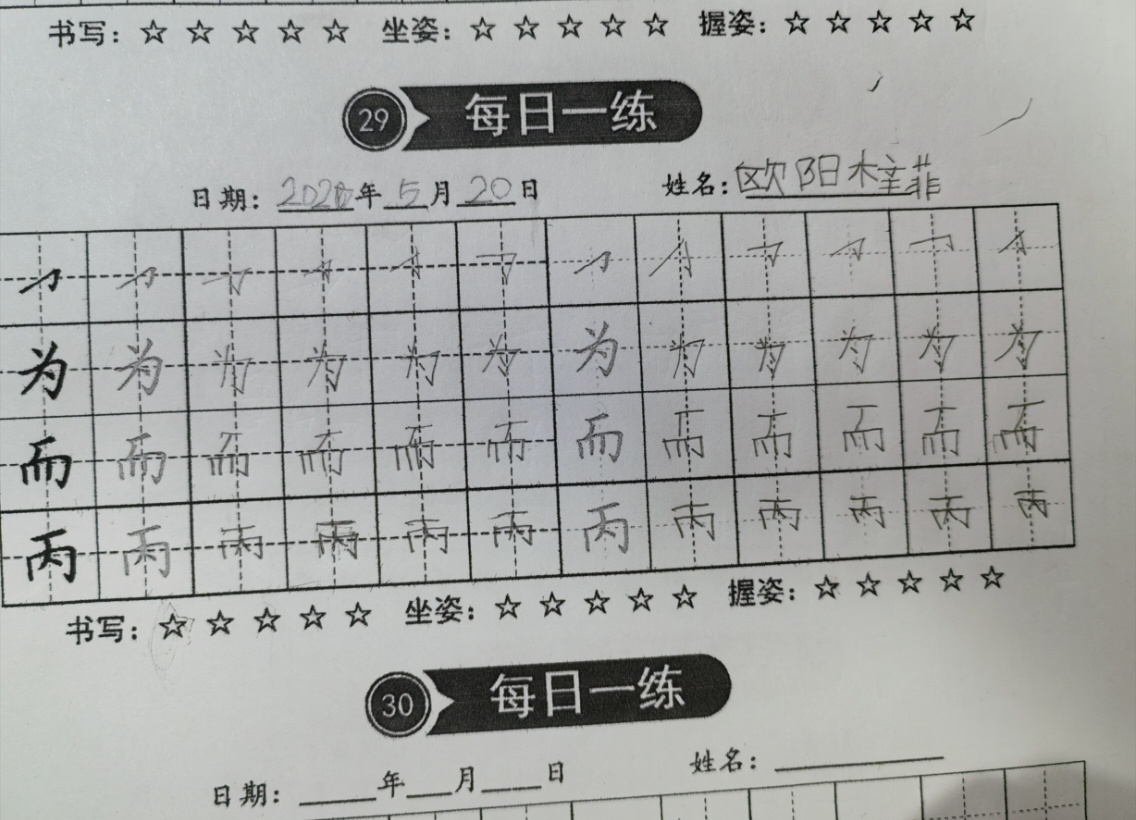 书写：☆ ☆ ☆ ☆ ☆ 坐姿：☆ ☆ ☆ ☆ ☆ 握姿：☆ ☆ ☆ ☆ ☆
29 每日一练
日期：年 5 月 20 日 姓名：欧阳菲
为 为 为 为 为 为 为 为 为 为 为 为
而 而 而 而 而 而 而 而 而 而 而 而
丙 丙 丙 丙 丙 丙 丙 丙 丙 丙 丙 丙
书写：☆ ☆ ☆ ☆ ☆ 坐姿：☆ ☆ ☆ ☆ ☆ 握姿：☆ ☆ ☆ ☆ ☆
30 每日一练
日期：____年___月___日 姓名：________